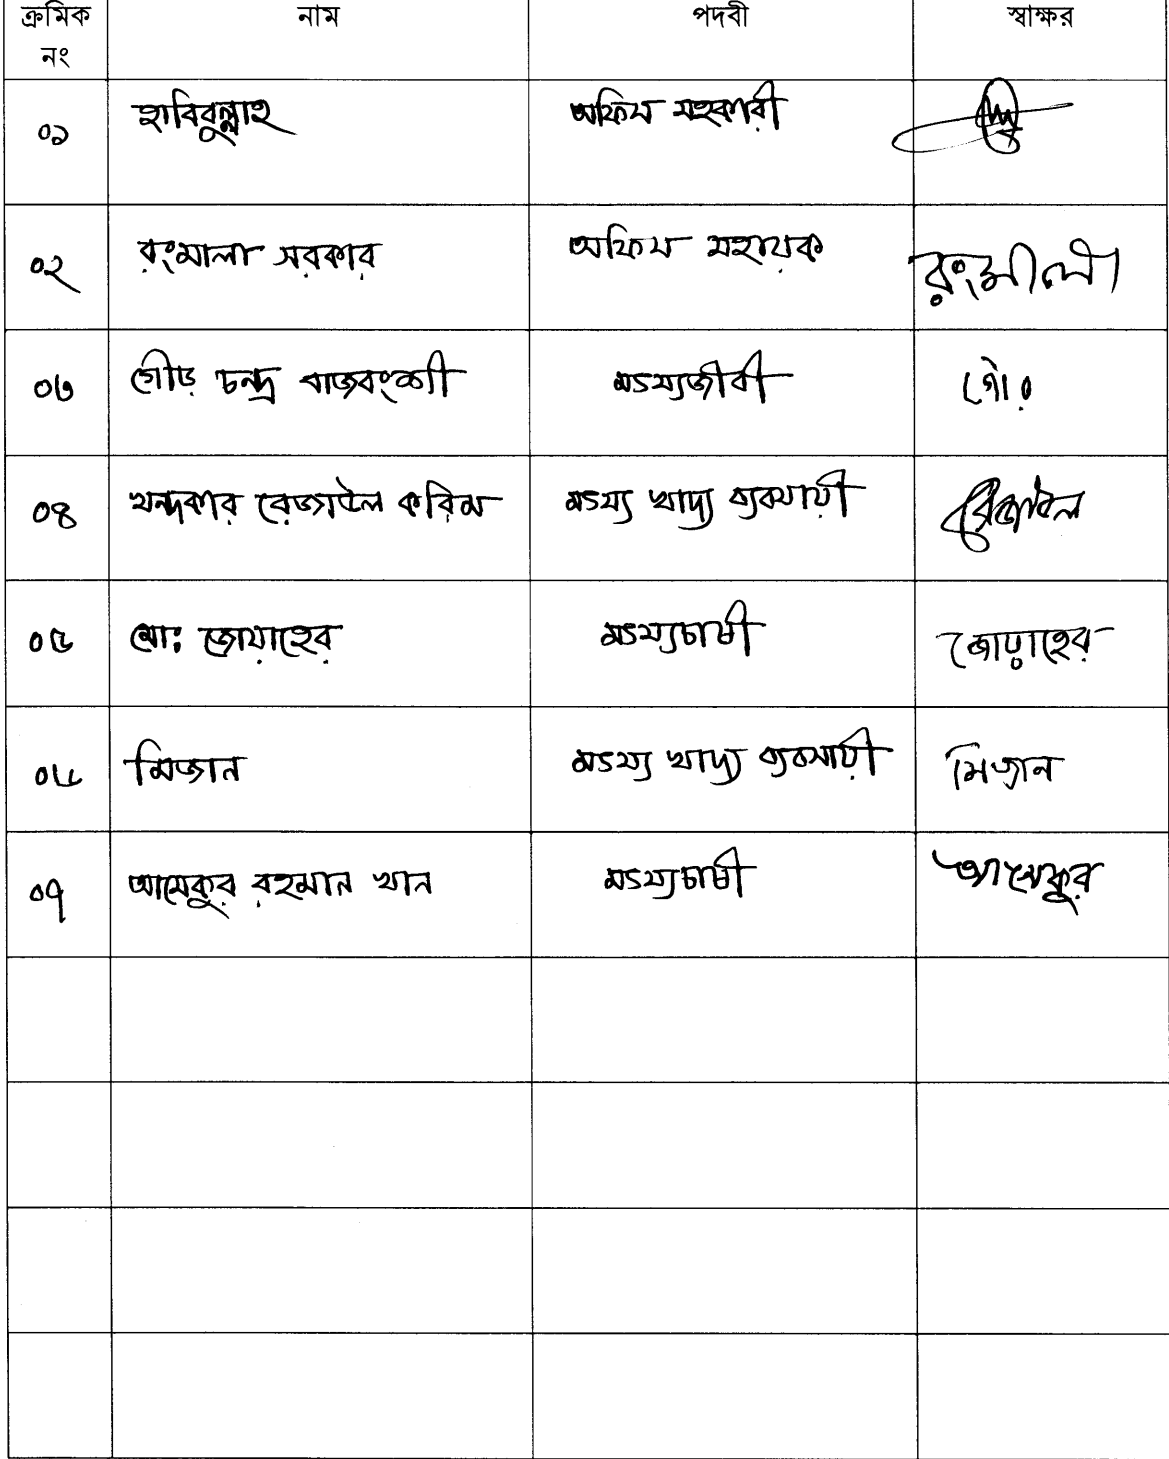 ক্রমিক নং নাম পদবী স্বাক্ষর
০১ হাবিবুল্লাহ অফিস সহকারী
০২ রংমালা সরকার অফিস সহায়ক রংমালা
০৩ গৌড় চন্দ্র রাজবংশী মৎস্যজীবী গৌর
০৪ খন্দকার রেজাউল করিম মৎস্য খাদ্য ব্যবসায়ী রেজাউল
০৫ মোঃ জোয়াহের মৎস্যচাষী জোয়াহের
০৬ মিজান মৎস্য খাদ্য ব্যবসায়ী মিজান
০৭ আসেকুর রহমান খান মৎস্যচাষী আসেকুর